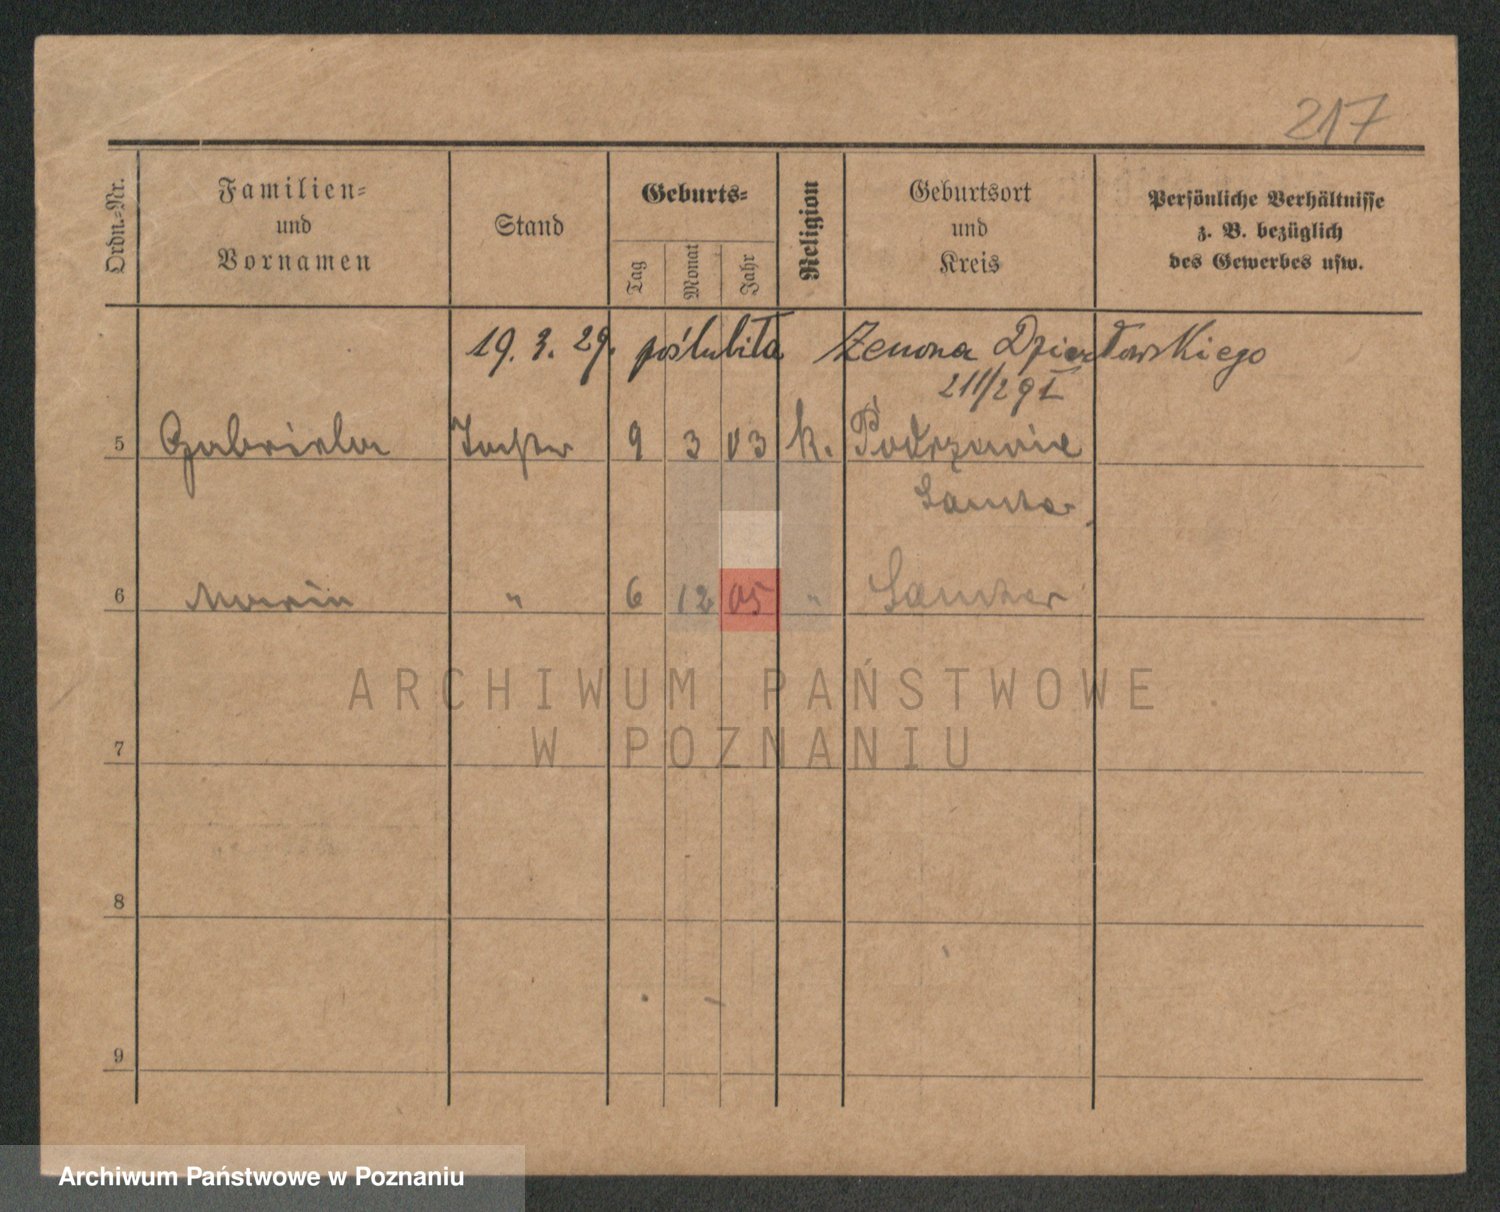 217
Ordn.-Nr.
Familien-
und
Vornamen
Stand
Geburts-
Tag
Monat
Jahr
Religion
Geburtsort
und
Kreis
Persönliche Verhältnisse
z. B. bezüglich
des Gewerbes usw.
19. 3. 29. poślubiła Zenona
211/29 I
5 Gabriela Tochter 9 3 03 k.
Samter
6 Maria " 6 12 05 " Samter
ARCHIWUM PAŃSTWOWE
W POZNANIU
7
8
9
Archiwum Państwowe w Poznaniu